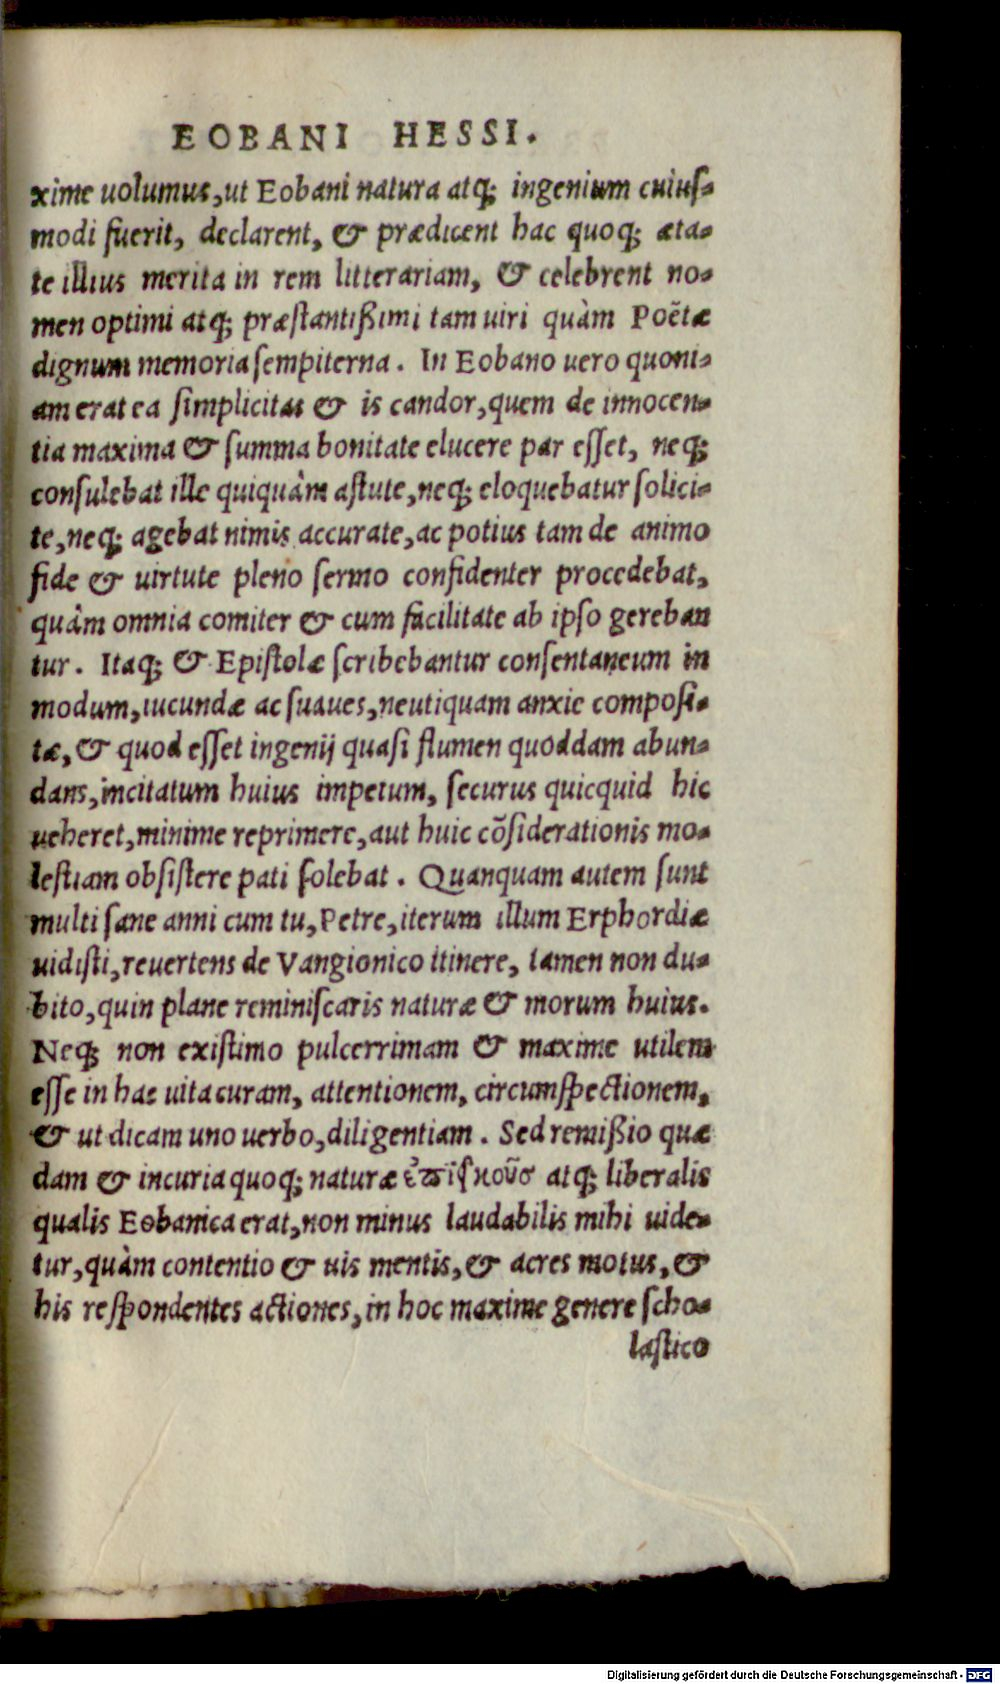 EOBANI HESSI.
xime uolumus, ut Eobani natura atq; ingenium cuius-
modi fuerit, declarent, & prædicent hac quoq; æta-
te illius merita in rem litterariam, & celebrent no-
men optimi atq; præstantißimi tam uiri quàm Poëtæ
dignum memoria sempiterna. In Eobano uero quoni-
am erat ea simplicitas & is candor, quem de innocen-
tia maxima & summa bonitate elucere par esset, neq;
consulebat ille quiquàm astute, neq; eloquebatur solici-
te, neq; agebat nimis accurate, ac potius tam de animo
fide & uirtute pleno sermo confidenter procedebat,
quàm omnia comiter & cum facilitate ab ipso gereban
tur. Itaq; & Epistolæ scribebantur consentaneum in
modum, iucundæ ac suaues, neutiquam anxie composi-
tæ, & quod esset ingenij quasi flumen quoddam abun-
dans, incitatum huius impetum, securus quicquid hic
ueheret, minime reprimere, aut huic cõsiderationis mo-
lestiam obsistere pati solebat. Quanquam autem sunt
multi sane anni cum tu, Petre, iterum illum Erphordiæ
uidisti, reuertens de Vangionico itinere, tamen non du-
bito, quin plane reminiscaris naturæ & morum huius.
Neq; non existimo pulcerrimam & maxime utilem
esse in hac uita curam, attentionem, circumspectionem,
& ut dicam uno uerbo, diligentiam. Sed remißio quæ
dam & incuria quoq; naturæ atq; liberalis
qualis Eobanica erat, non minus laudabilis mihi uide-
tur, quàm contentio & uis mentis, & acres motus, &
his respondentes actiones, in hoc maxime genere scho-
lastico
Digitalisierung gefördert durch die Deutsche Forschungsgemeinschaft - DFG